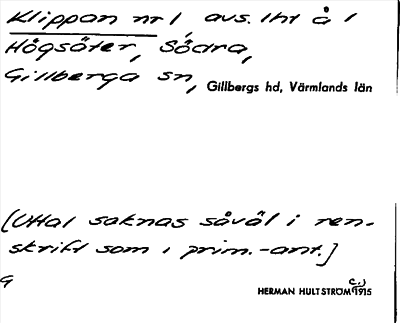 Klippan nr 1, avs. lht å 1
Högsäter, Södra,
Gillberga sn, Gillbergs hd, Värmlands län
[Uttal saknas såväl i ren-
skrift som i prim.-ant.]
G
HERMAN HULTSTRÖM c.) 1915